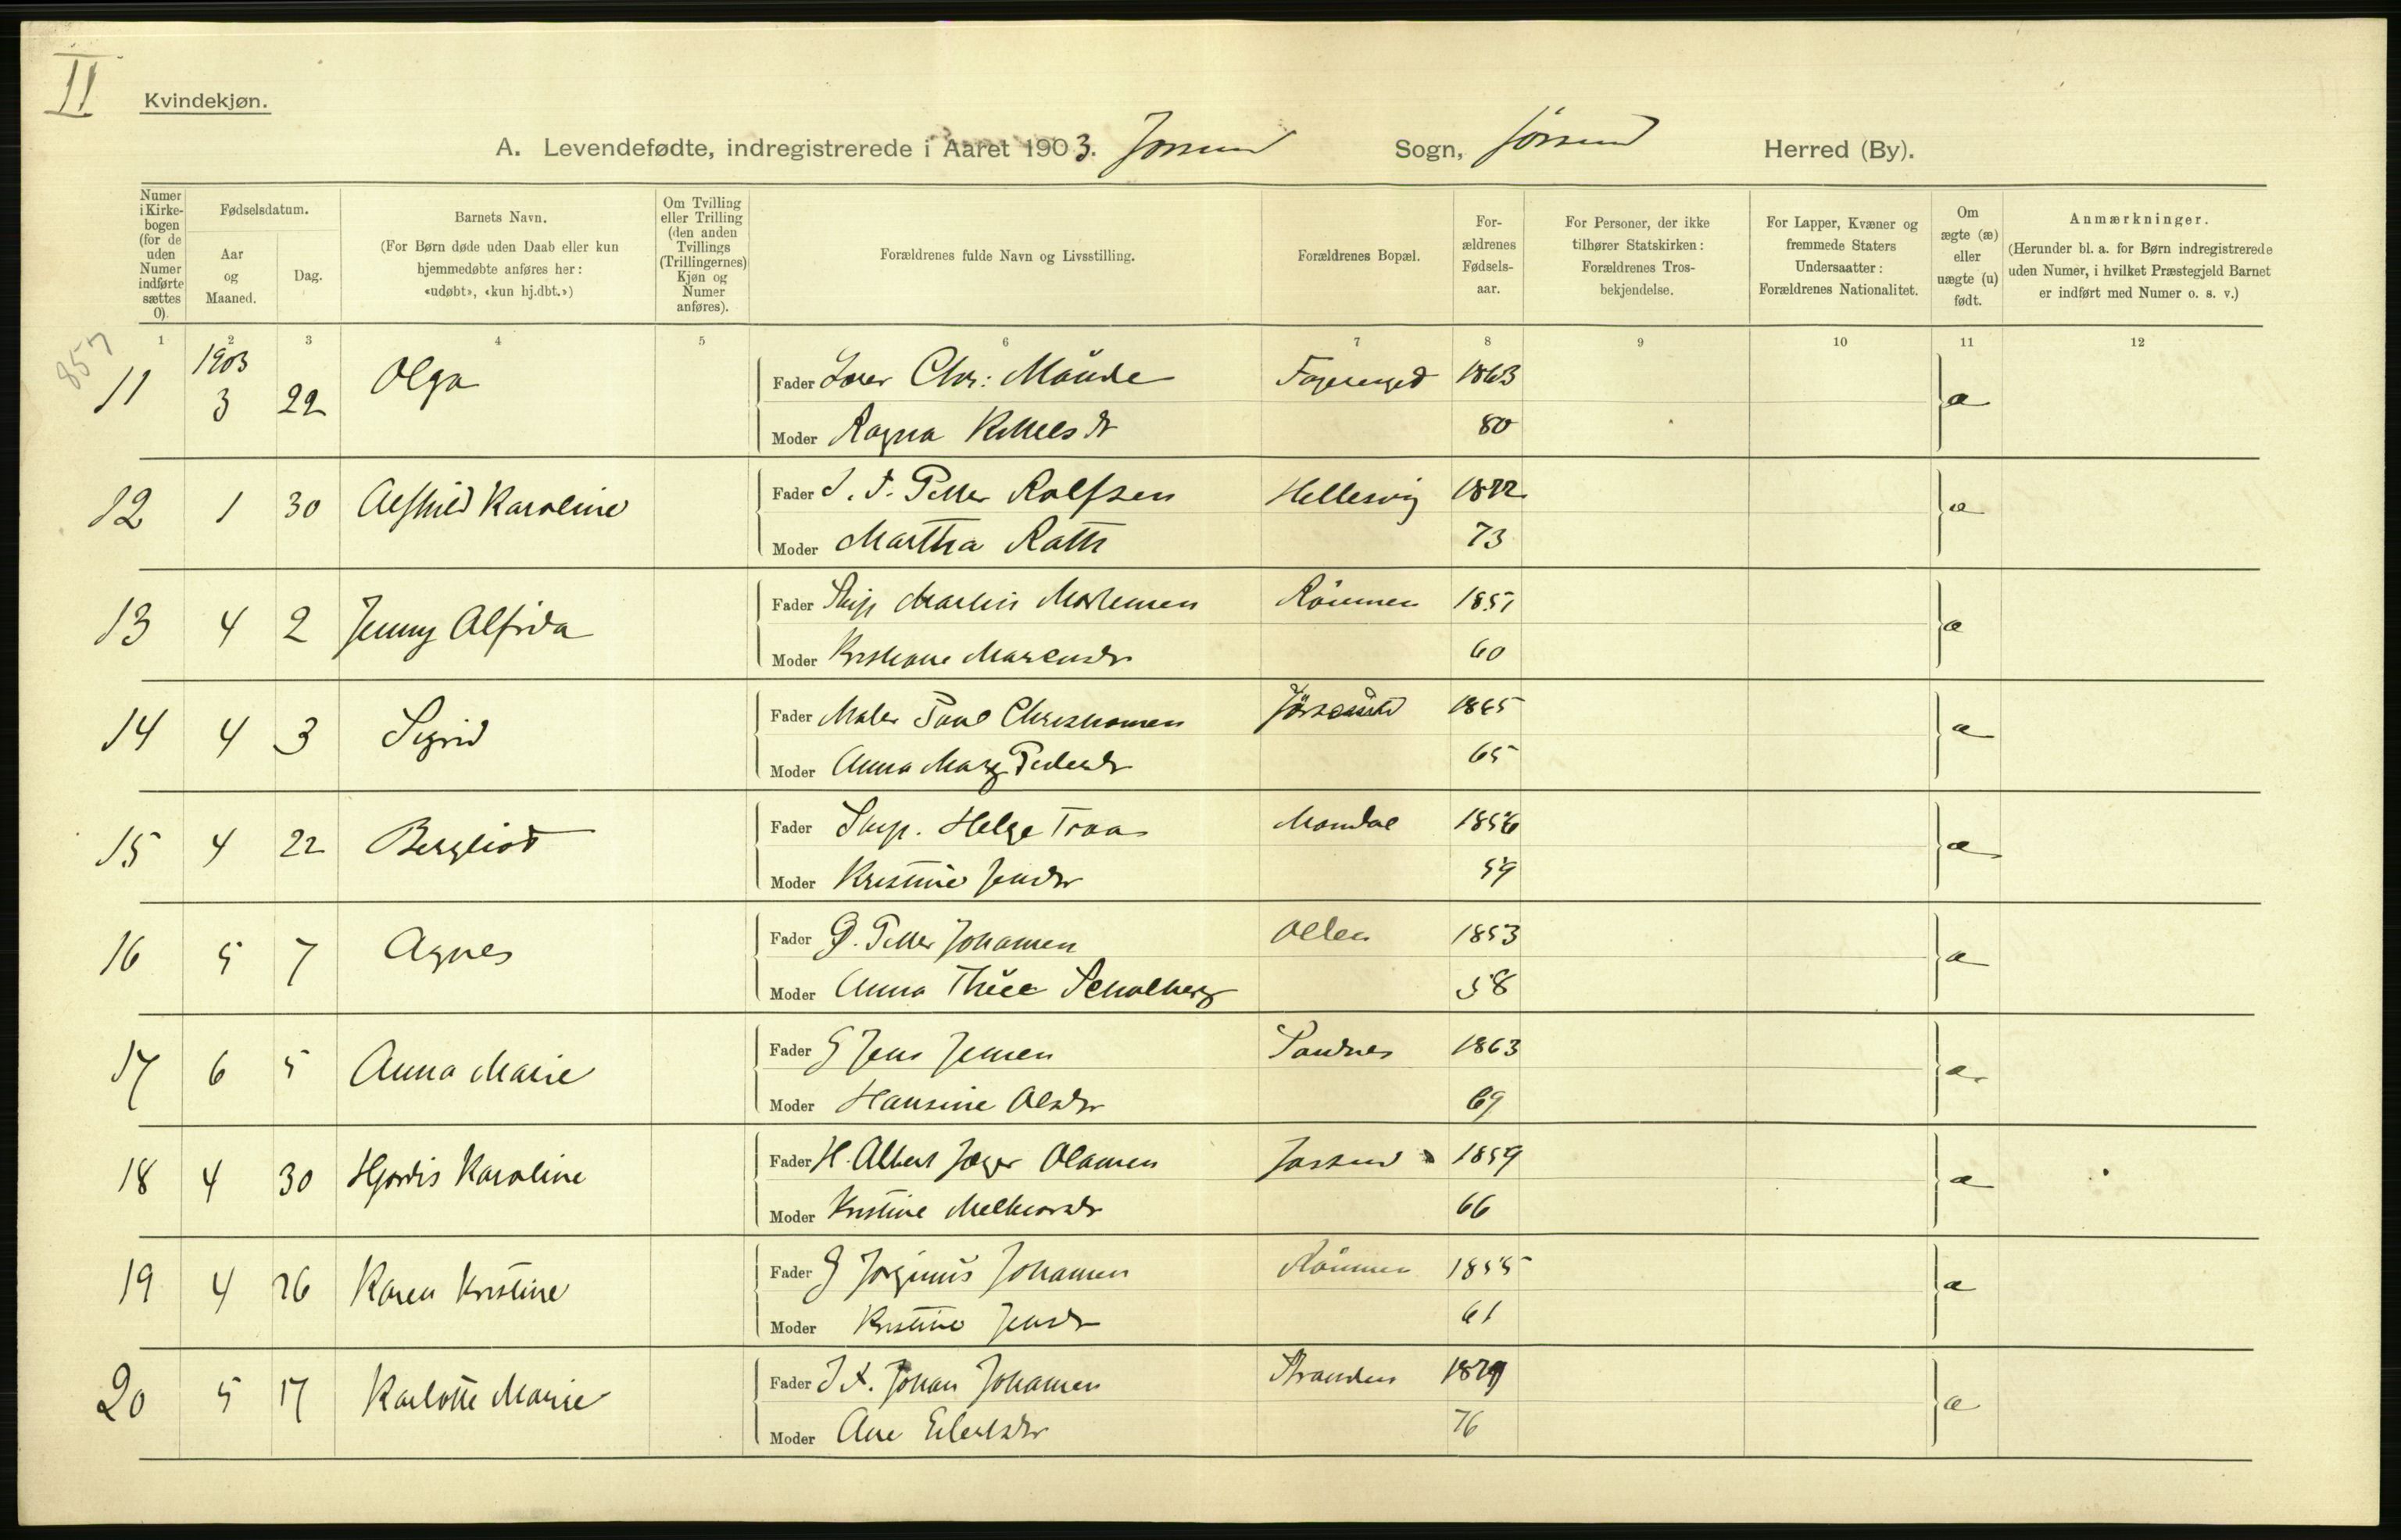 II
Kvindekjøn.
A. Levendefødte, indregistrerede i Aaret 1903. Jøssund Sogn, Jøssund Herred (By).
Numer i Kirkebogen (for de uden Numer indførte sættes 0).
Fødselsdatum.
Aar og Maaned.
Dag.
Barnets Navn.
(For Børn døde uden Daab eller kun hjemmedøbte anføres her: «udøbt», «kun hj.dbt.»)
Om Tvilling eller Trilling (den anden Tvillings (Trillingernes) Kjøn og Numer anføres).
Forældrenes fulde Navn og Livsstilling.
Forældrenes Bopæl.
Forældrenes Fødselsaar.
For Personer, der ikke tilhører Statskirken: Forældrenes Trosbekjendelse.
For Lapper, Kvæner og fremmede Staters Undersaatter: Forældrenes Nationalitet.
Om ægte (æ) eller uægte (u) født.
Anmærkninger.
(Herunder bl. a. for Børn indregistrerede uden Numer, i hvilket Præstegjeld Barnet er indført med Numer o. s. v.)
1 2 3 4 5 6 7 8 9 10 11 12
857
1903
11 3 22 Olga Fader Chr: Fagerenget 1863 æ
Moder Ragna 80
12 1 30 Karoline Fader Petter Rolfsen Hellesvig 1872 æ
Moder Martha 73
13 4 2 Jenny Alfrida Fader Skip Martin Mortensen 1857 æ
Moder 60
14 4 3 Sigrid Fader Maler Paul Christiansen Jøssund 1865 æ
Moder Anna Marg Pedersdr 65
15 4 22 Bergliot Fader Skip. Helge Traa Mandal 1856 æ
Moder Kristine Jensdr 59
16 5 7 Agnes Fader G. Petter Johansen 1853 æ
Moder Anna Schalberg 58
17 6 5 Anna Marie Fader G Jens Jensen Sandnes 1863 æ
Moder Hansine Olsdr 69
18 4 30 Hjørdis Karoline Fader H. Albert Jæger Olamen Jøssund 1859 æ
Moder Kristine Melkiorsdr 66
19 4 26 Karen Kristine Fader G Johansen 1855 æ
Moder Kristine Jensdr 61
20 5 17 Karlotte Marie Fader Johan Johansen Stranden 1879 æ
Moder Ane Eilertsdr 76